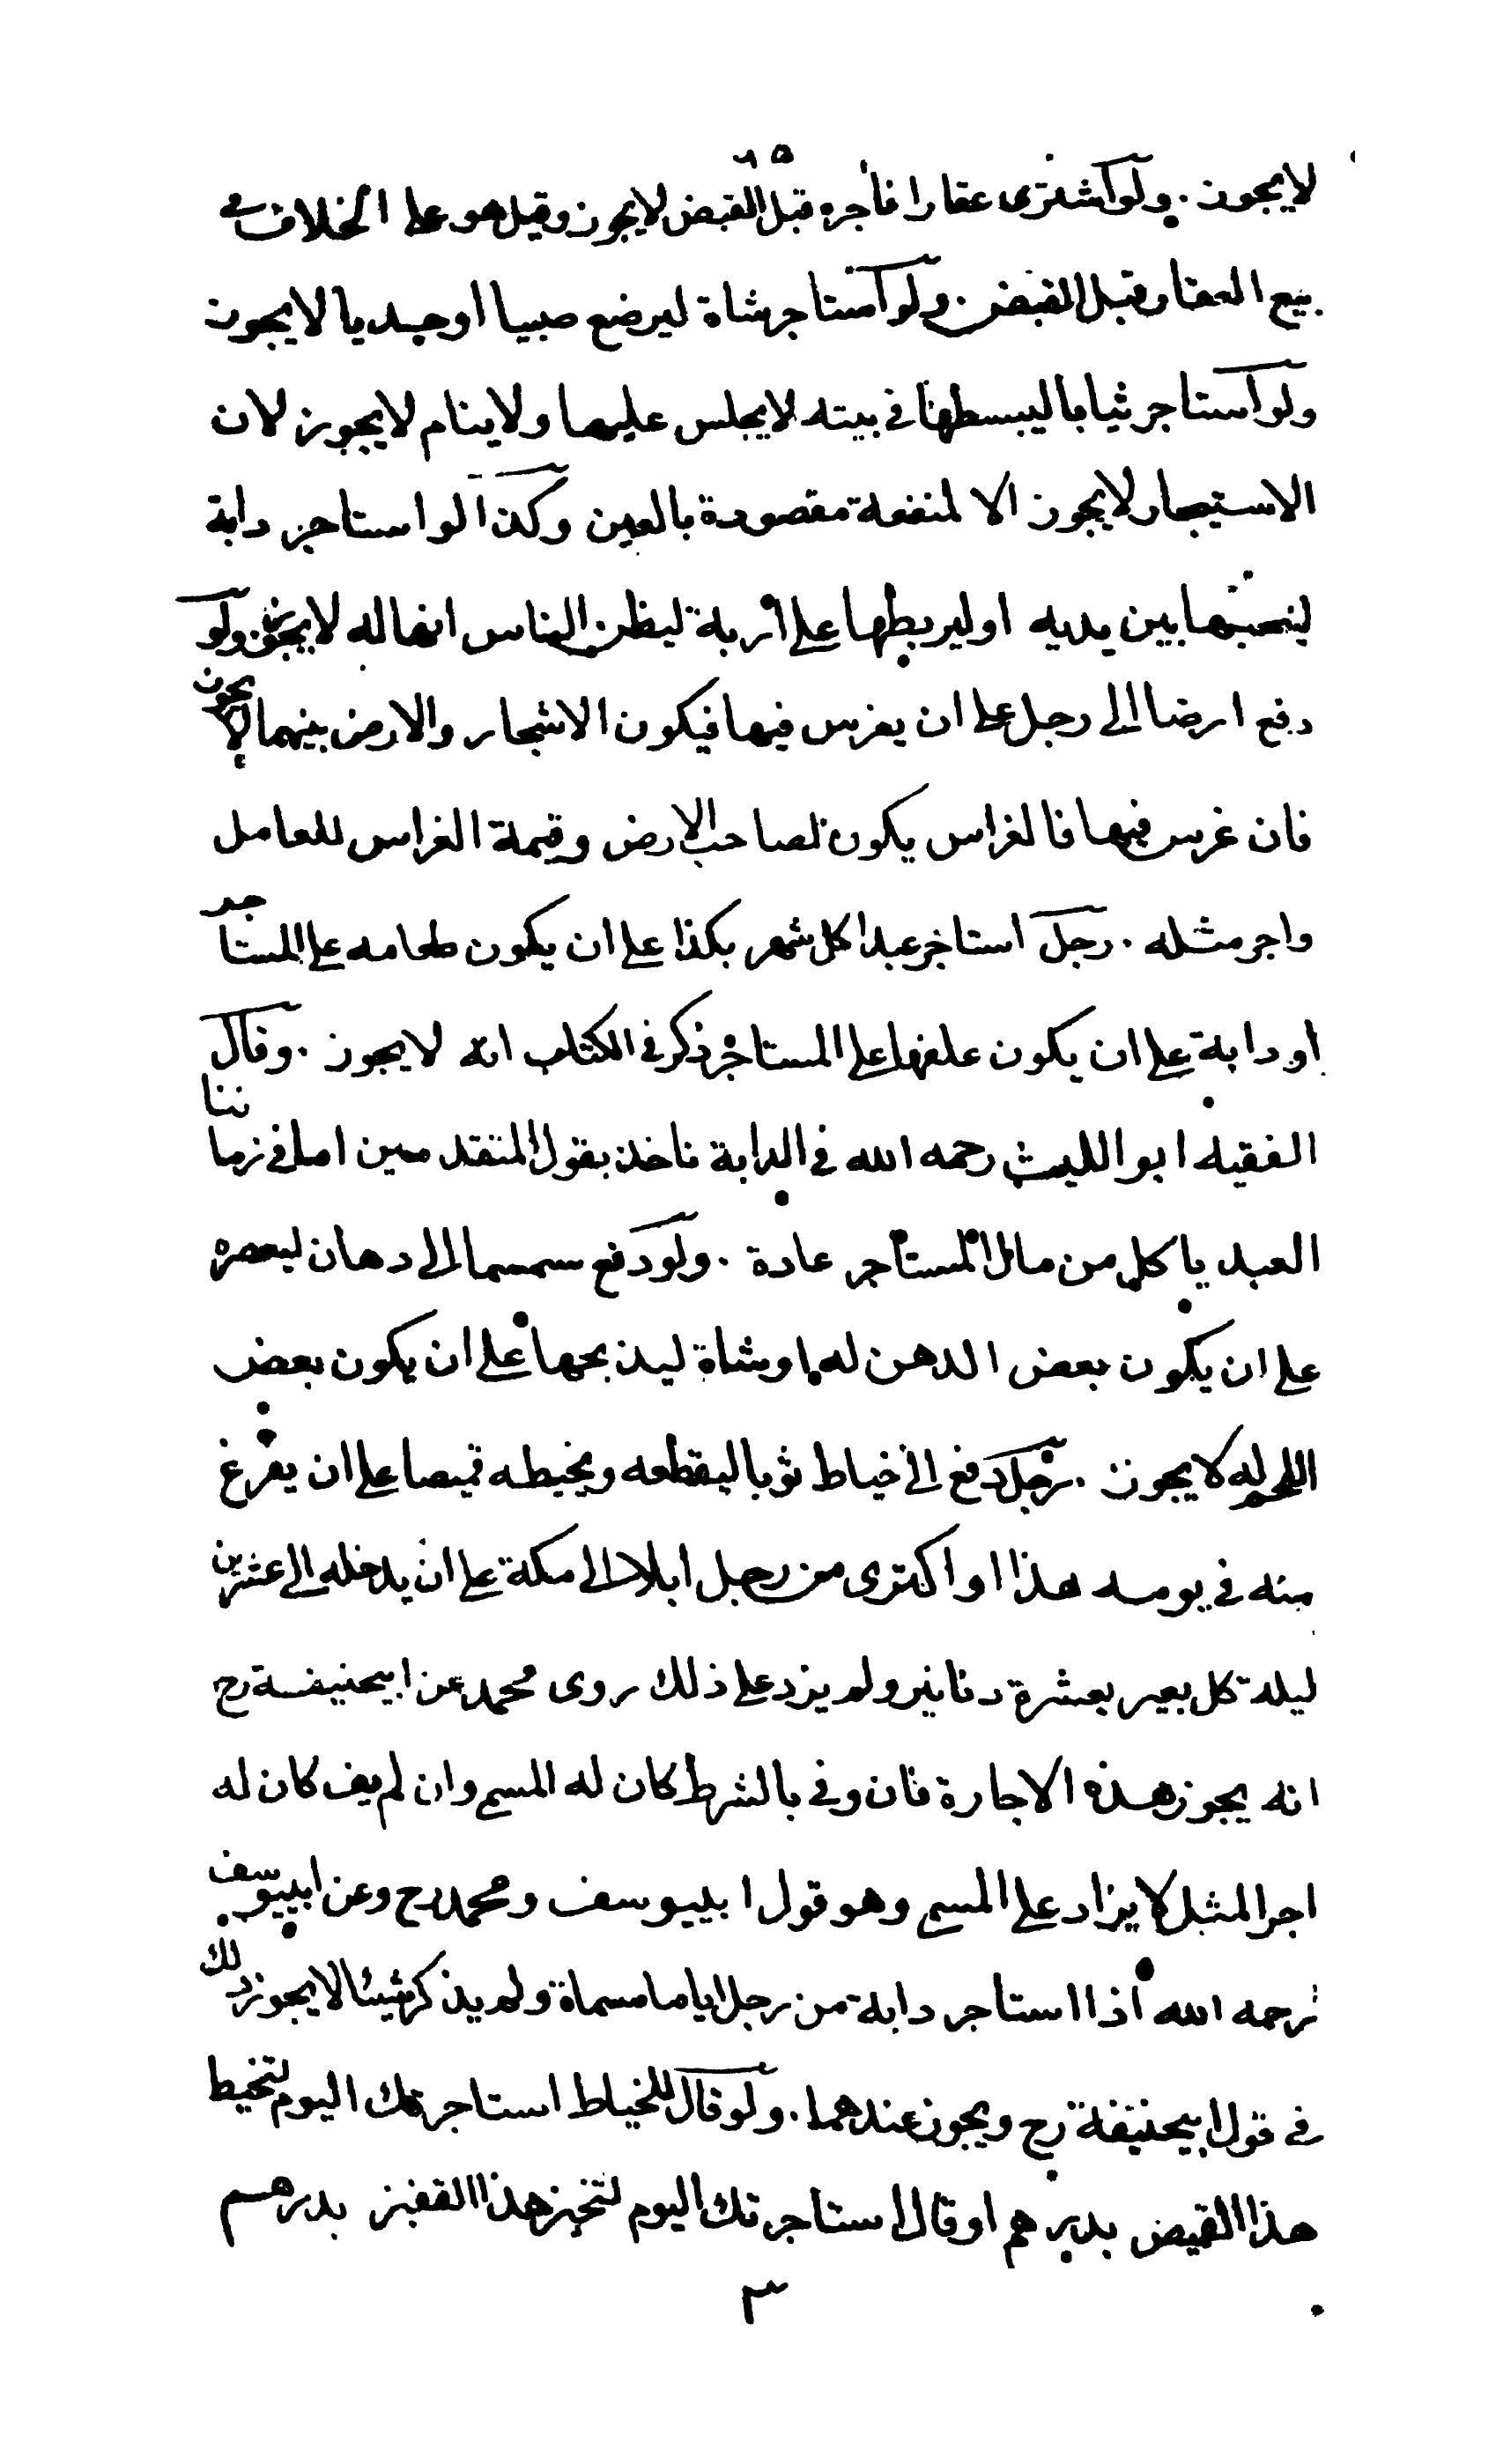 ٦٥
لا يجوز . ولو اشترى عقارا فاجره قبل القبض لا يجوز وقيل هو على الخلاف في
بيع العقار قبل القبض . ولو استاجر شاة ليرضع صبيا او جديا لا يجوز
ولو استاجر ثيابا ليبسطها في بيته لا يجلس عليها ولا ينام لا يجوز لان
الاستيجار لا يجوز الا لمنفعة مقصودة بالعين وكذا لو استاجر دابة
بين يديه او ليربطها على اربة ليظن الناس انها له لا يجوز ولو
دفع ارضا الى رجل على ان يغرس فيها فيكون الاشجار والارض بينهما لا يجوز
فان غرس فيها فالغراس يكون لصاحب الارض وقيمة الغراس للعامل
واجر مثله . رجل استاجر عبدا كل شهر بكذا على ان يكون طعامه على المستاجر
او دابة على ان يكون علفها على المستاجر ذكر في الكتاب انه لا يجوز . وقال
الفقيه ابو الليث رحمه الله في الدابة ناخذ بقول المتقدمين اما في زماننا
العبد ياكل من مال المستاجر عادة . ولو دفع سمسما الى دهان ليعصره
على ان يكون بعض الدهن له او شاة ليذبحها على ان يكون بعض
اللحم له لا يجوز . رجل دفع الى خياط ثوبا ليقطعه ويخيطه قميصا على ان يفرغ
منه في يومه هذا او اكترى من رجل ابلا الى مكة على ان يدخله الى عشرين
ليلة كل بعير بعشرة دنانير ولم يزد على ذلك روى محمد عن ابيحنيفة رح
انه يجوز هذه الاجارة فان وفى بالشرط كان له المسمى وان لم يف كان له
اجر المثل لا يزاد على المسمى وهو قول ابييوسف ومحمد رح وعن ابييوسف
رحمه الله اذا استاجر دابة من رجل اياما مسماة ولم يذكر شيئا لا يجوز ذلك
في قول ابيحنيفة رح ويجوز عندهما . ولو قال للخياط استاجرتك اليوم لتخيط
هذا القميص بدرهم او قال استاجرتك اليوم لتخبز هذا القفيز بدرهم
٣